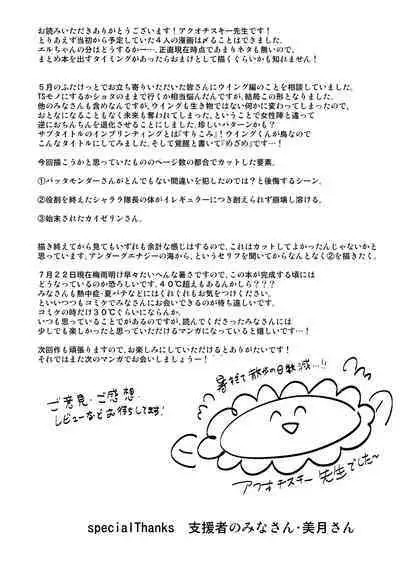 お読みいただきありがとうございます！アクオチスキー先生です！
とりあえず当初から予定していた４人の漫画は〆ることはできました。
エルちゃんの分はどうするかー…、正直現在時点であまりネタも無いので、
まとめ本を出すタイミングがあったらおまけとして描くくらいかも知れません！
５月のふたけっとでお立ち寄りいただいた皆さんにウイング編のことを相談していました。
TSモノにするかショタのままで行くか相当悩んだんですが、結局この形となりました。
他のみなさんも含めなんですが、ウイングも生き物ではない何かに変わってしまったので、
おとなになることもなく未来も奪われてしまった、ということで女性陣と違って
逆におちんちんを退化させることにしました。珍しいパターンかも？
サブタイトルのインプリンティングとは『すりこみ』！ウイングくんが鳥なので
こんなタイトルにしてみました。そして覚醒と書いて『めざめ』です…！
今回描こうかと思っていたもののページ数の都合でカットした要素。
①バッタモンダーさんがとんでもない間違いを犯したのでは？と後悔するシーン。
②役割を終えたシャララ隊長の体がイレギュラーにつき耐えられず崩壊し溶ける。
③始末されたカイゼリンさん。
描き終えてから見てもいずれも余計な感じはするので、これはカットしてよかったんじゃないかと
思っています。アンダーグエナジーの海から、というセリフを聞いてからなんとなく②を描きたく。
７月２２日現在梅雨明け早々たいへんな暑さですので、この本が完成する頃には
どうなっているのか恐ろしいです。４０℃超えもあるんかしら？？？
みなさんも熱中症・夏バテなどにはくれぐれもお気をつけください。
といいつつもコミケでみなさんにお会いできるのが待ち遠しいです。
コミケの時だけ３０℃くらいにならんか。
いつも思っていることであるのですが、読んでくださったみなさんには
少しでも楽しかったと思っていただけるマンガになっていると嬉しいです…！
次回作も頑張りますので、お楽しみにしていただけるとありがたいです！
それではまた次のマンガでお会いしましょうー！
暑すぎて散歩の日数減…!!
ご意見・ご感想・
レビューなどお待ちしてます!
アクオチスキー先生でした〜
specialThanks　支援者のみなさん・美月さん